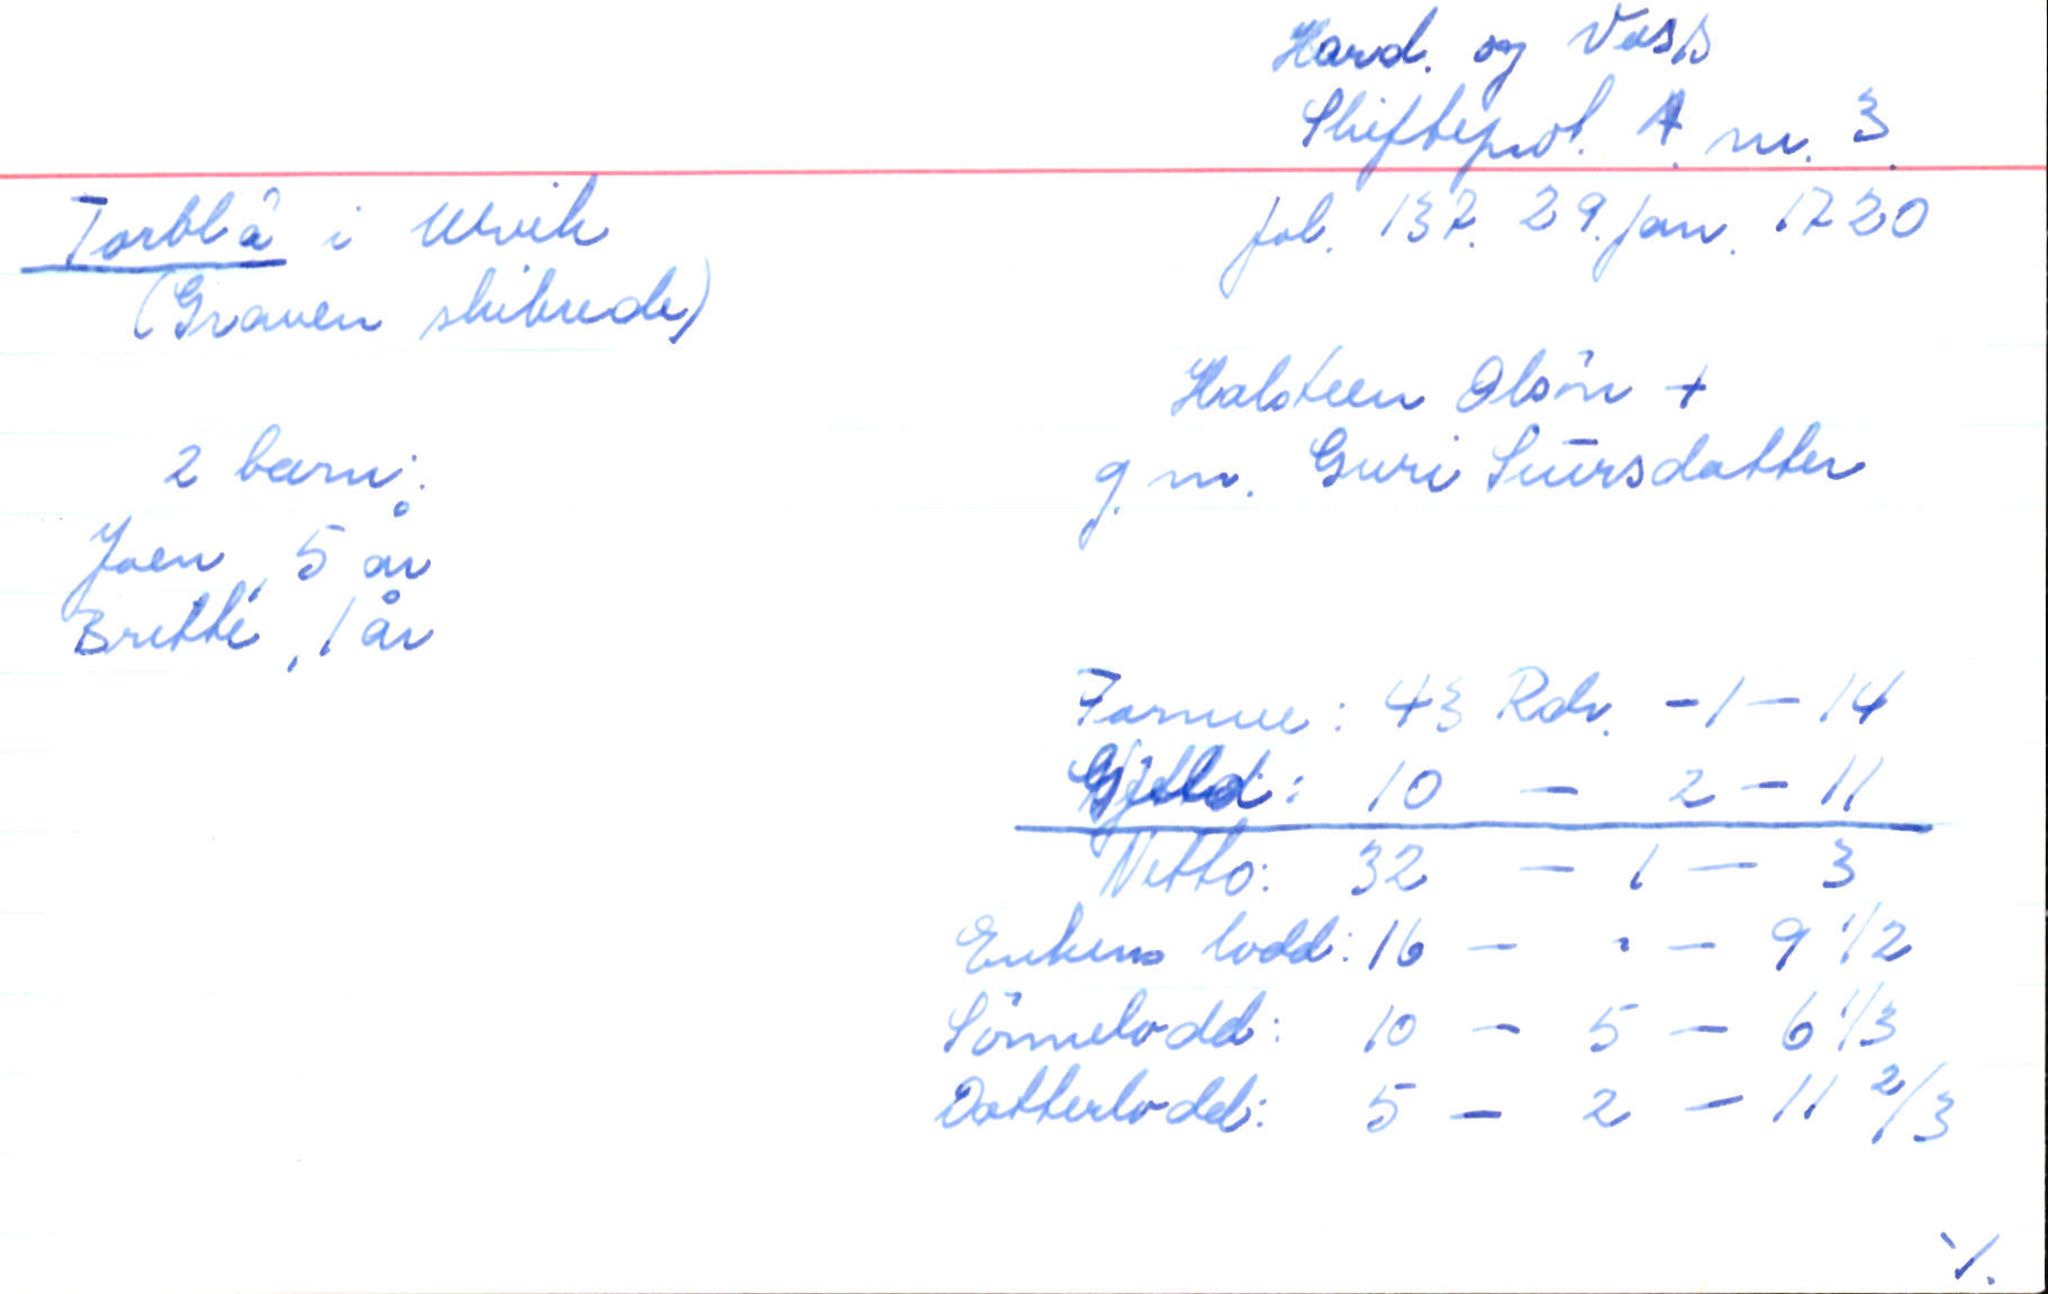 Hard. og Voss
Skifteprot. A. nr. 3.
fol. 137. 29. jan. 1720
Torblå i Ulvik
(Graven skibrede)
Halsteen Olsön +
g. m. Guri Siursdatter
2 barn:
Joen, 5 år
Britte, 1 år
Formue: 43 Rdr. - 1 - 14
Gjeld: 10 - 2 - 11
Netto: 32 - 1 - 3
Enkens lodd: 16 - · - 9 1/2
Sönnelodd: 10 - 5 - 6 1/3
Datterlodd: 5 - 2 - 11 2/3